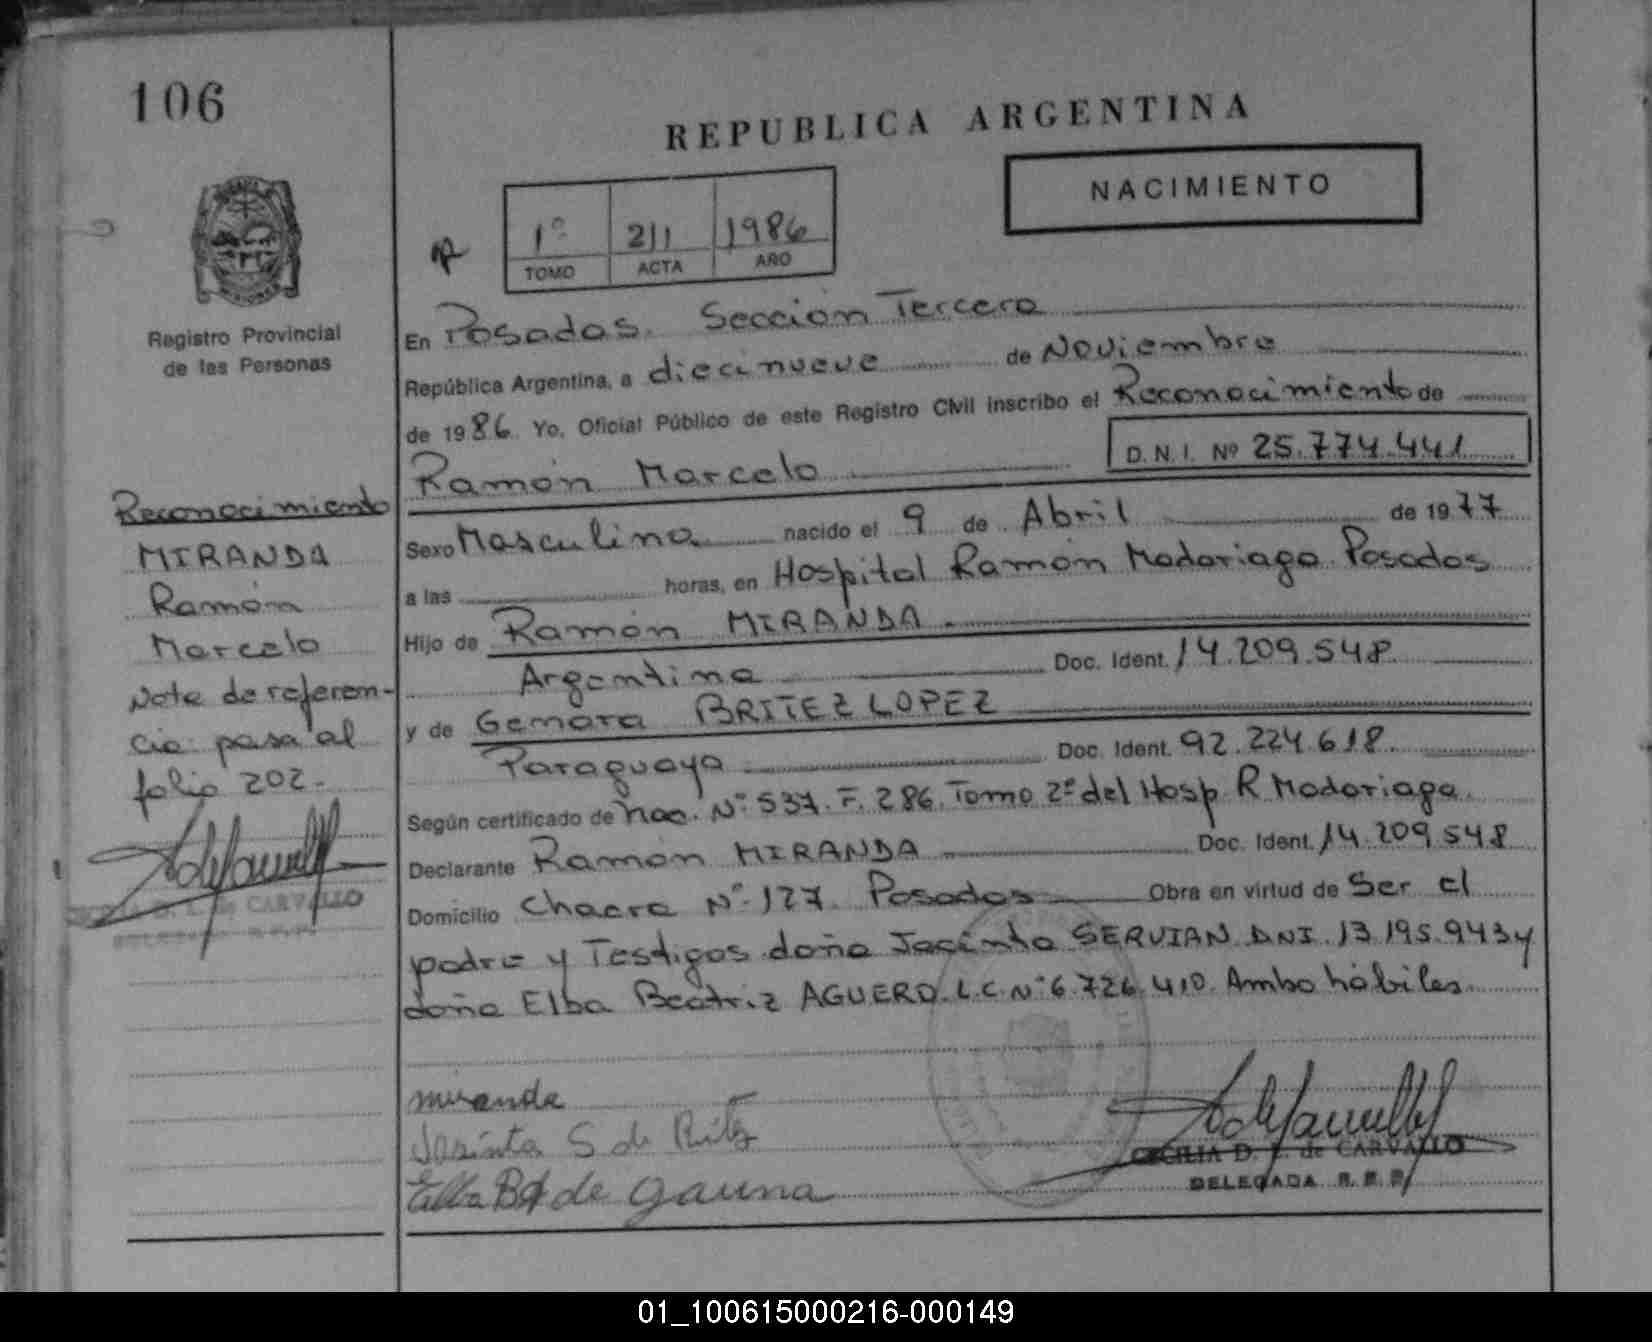 106
REPUBLICA ARGENTINA
NACIMIENTO
1º 211 1986
TOMO ACTA AÑO
Registro Provincial
de las Personas
En Posadas. Sección Tercera
República Argentina, a diecinueve de Noviembre
de 1986. Yo, Oficial Público de este Registro Civil inscribo el Reconocimiento de
Ramón Marcelo D. N. I. Nº 25.774.441
Sexo Masculino nacido el 9 de Abril de 1977
a las horas, en Hospital Ramón Madariaga. Posadas
Hijo de Ramón MIRANDA
Argentina Doc. Ident. 14.209.548
y de Genara BRITEZ LOPEZ
Paraguaya Doc. Ident. 92.224.618
Según certificado de nac. Nº 537. F. 286. Tomo 2º del Hosp R Madariaga.
Declarante Ramón MIRANDA Doc. Ident. 14.209.548
Domicilio Chacra Nº 127. Posadas Obra en virtud de Ser el
padre y Testigos doña Jacinta SERVIAN DNI. 13.195.943 y
doña Elba Beatriz AGUERO. L.C. Nº 6.726.410. Ambo hábiles.
Reconocimiento
MIRANDA
Ramón
Marcelo
Nota de referen-
cia: pasa al
folio 202.
D. L. de CARVALLO
miranda
Jasinta S de
Elba de Gauna
CECILIA D. L. de CARVALLO
DELEGADA R. P. P.
01_100615000216-000149